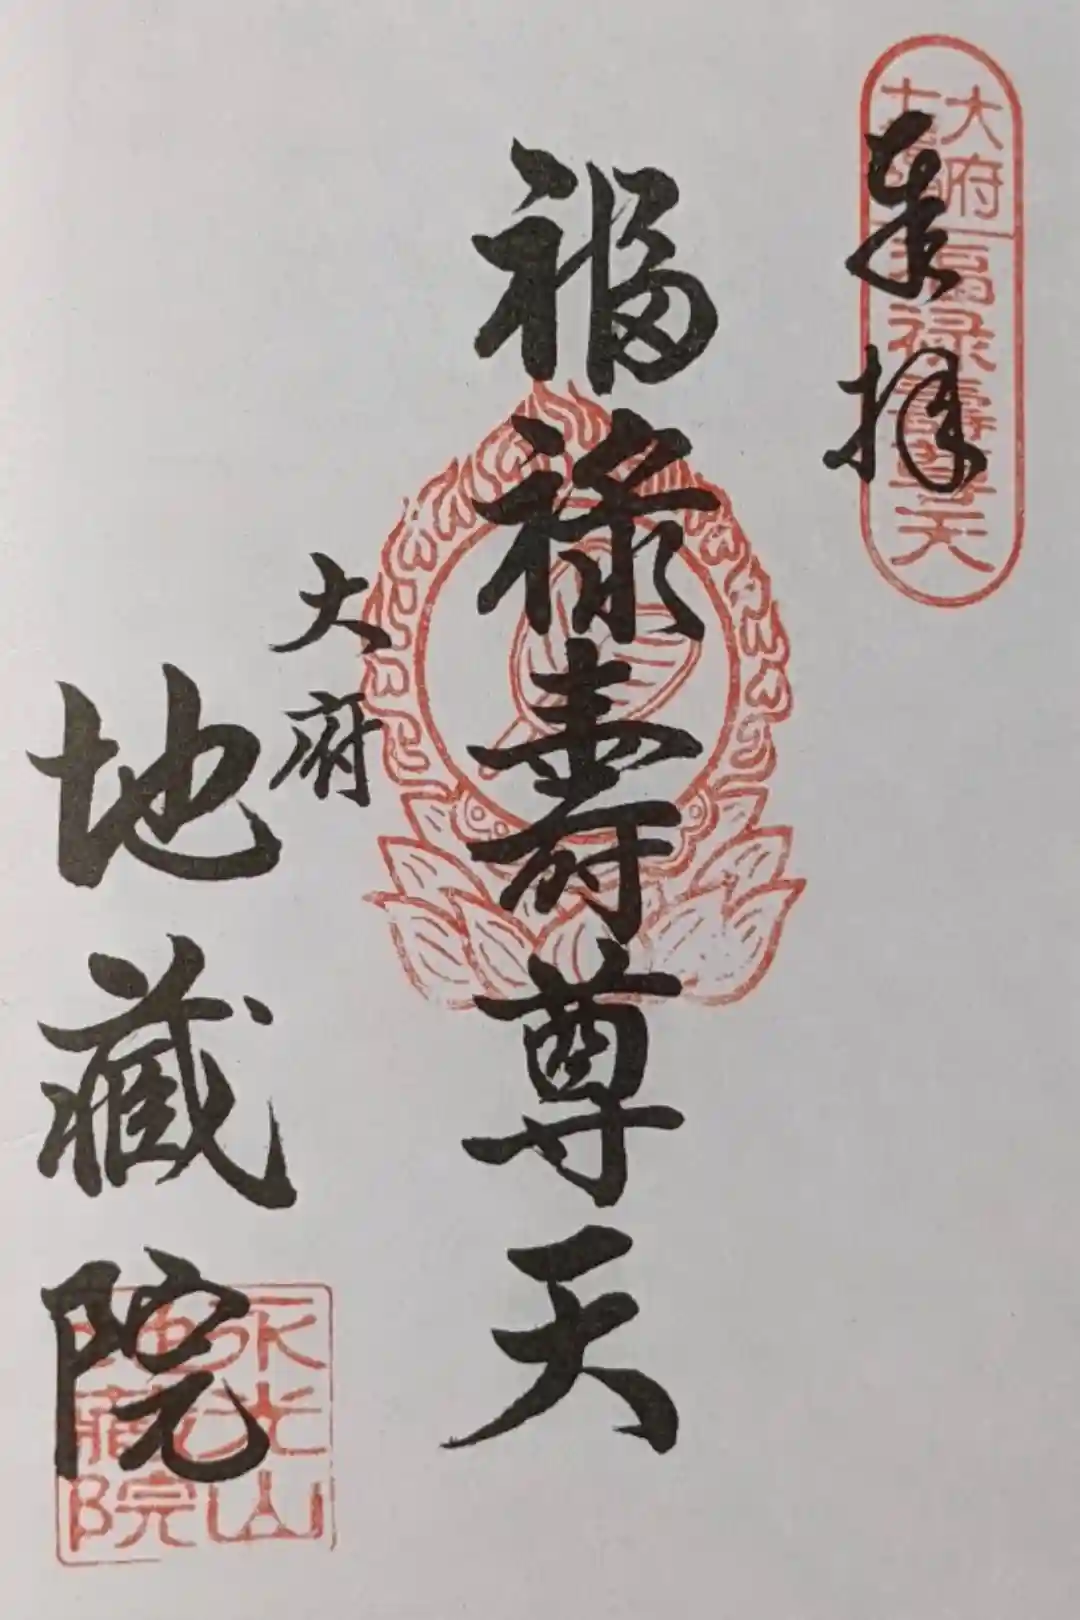 奉拝
大府
十
福禄寿尊天
福禄寿尊天
大府
地蔵院
永光山
地蔵院